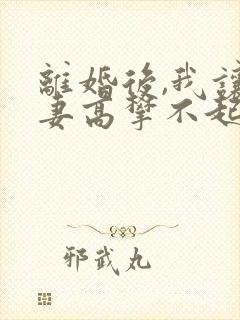 離婚後,我讓
妻高攀不起
邪武丸